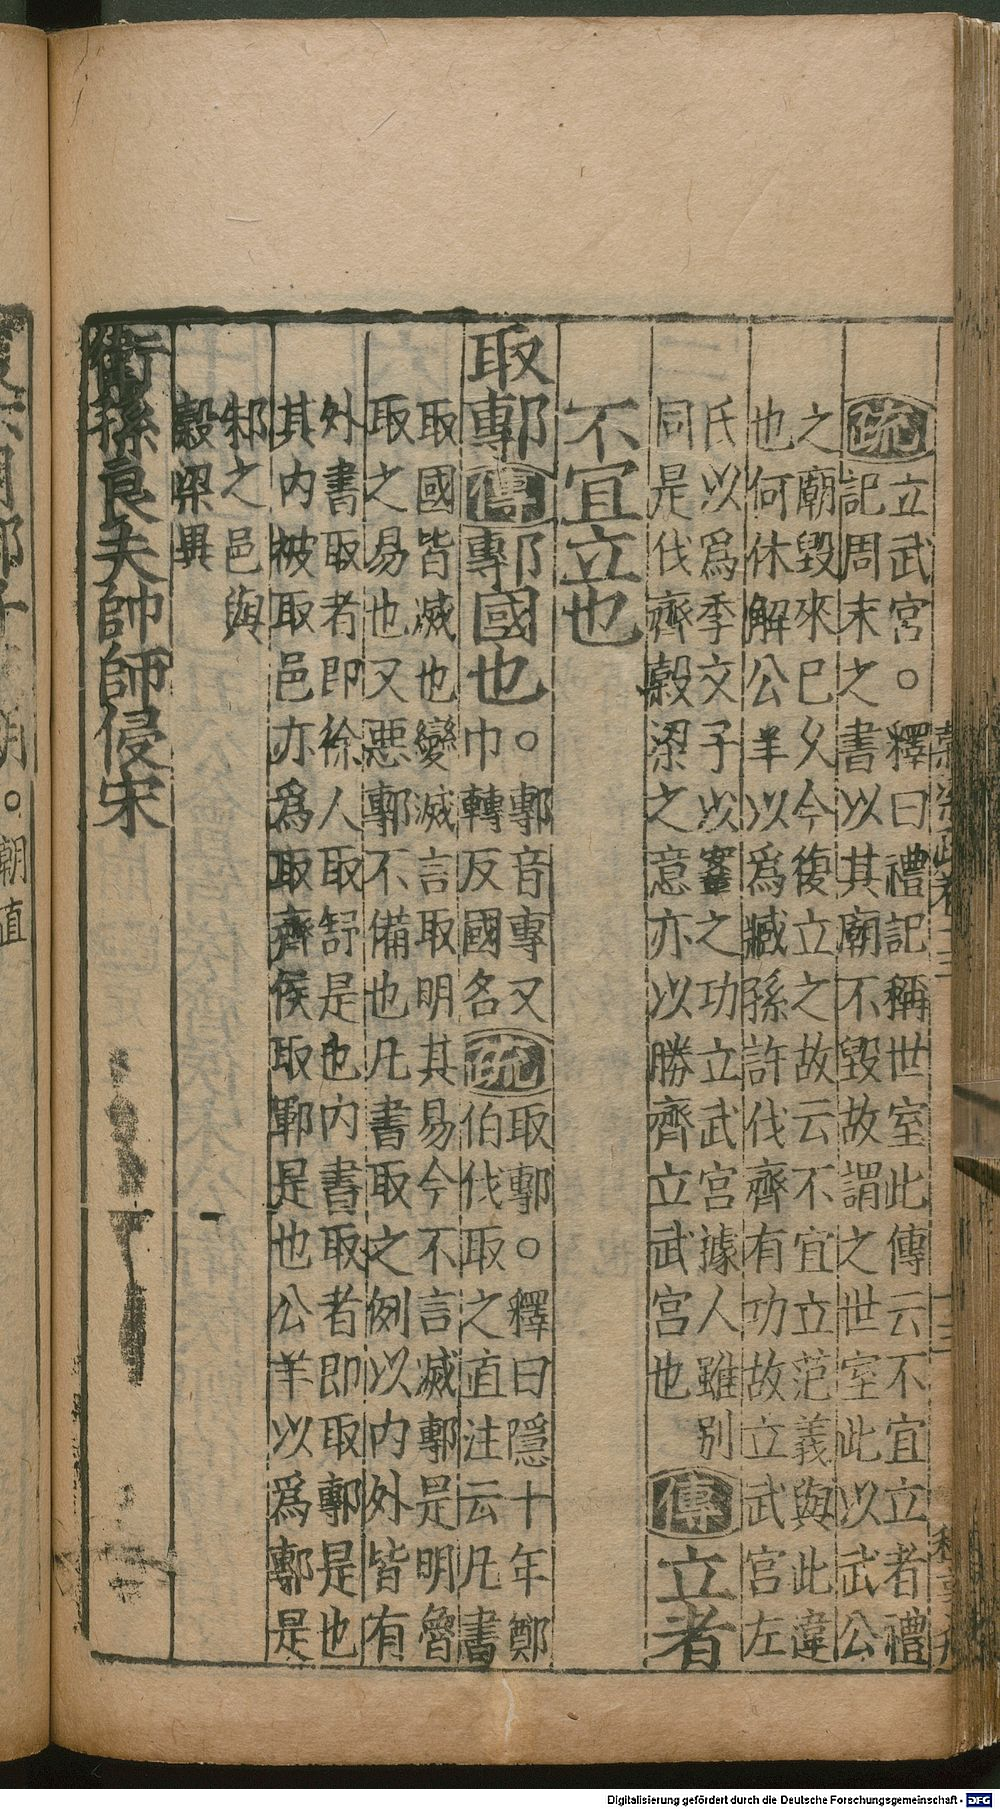 疏立武宮○釋曰禮記稱世室此傳云不宜立者禮
記周末之書以其廟不毀故謂之世室此以武公
之廟毀來巳久今復立之故云不宜立范義與此違
也何休解公羊以爲臧孫許伐齊有功故立武宮左
氏以爲季文子以鞌之功立武宮據人雖別
同是伐齊糓梁之意亦以勝齊立武宮也
傳立者
不宜立也
取鄟傳鄟國也
○鄟音專又
巾轉反國名
疏取鄟○釋曰隱十年鄭
伯伐取之直注云凡書
取國皆滅也變滅言取明其易今不言滅鄟是明魯
取之易也又惡鄟不備也凡書取之例以內外皆有
外書取者即徐人取舒是也內書取者即取鄟是也
其內被取邑亦爲取齊侯取鄆是也公羊以爲鄟是
邾之邑與
糓梁異
衛孫良夫帥師侵宋
○朝直
Digitalisierung gefördert durch die Deutsche Forschungsgemeinschaft - DFG